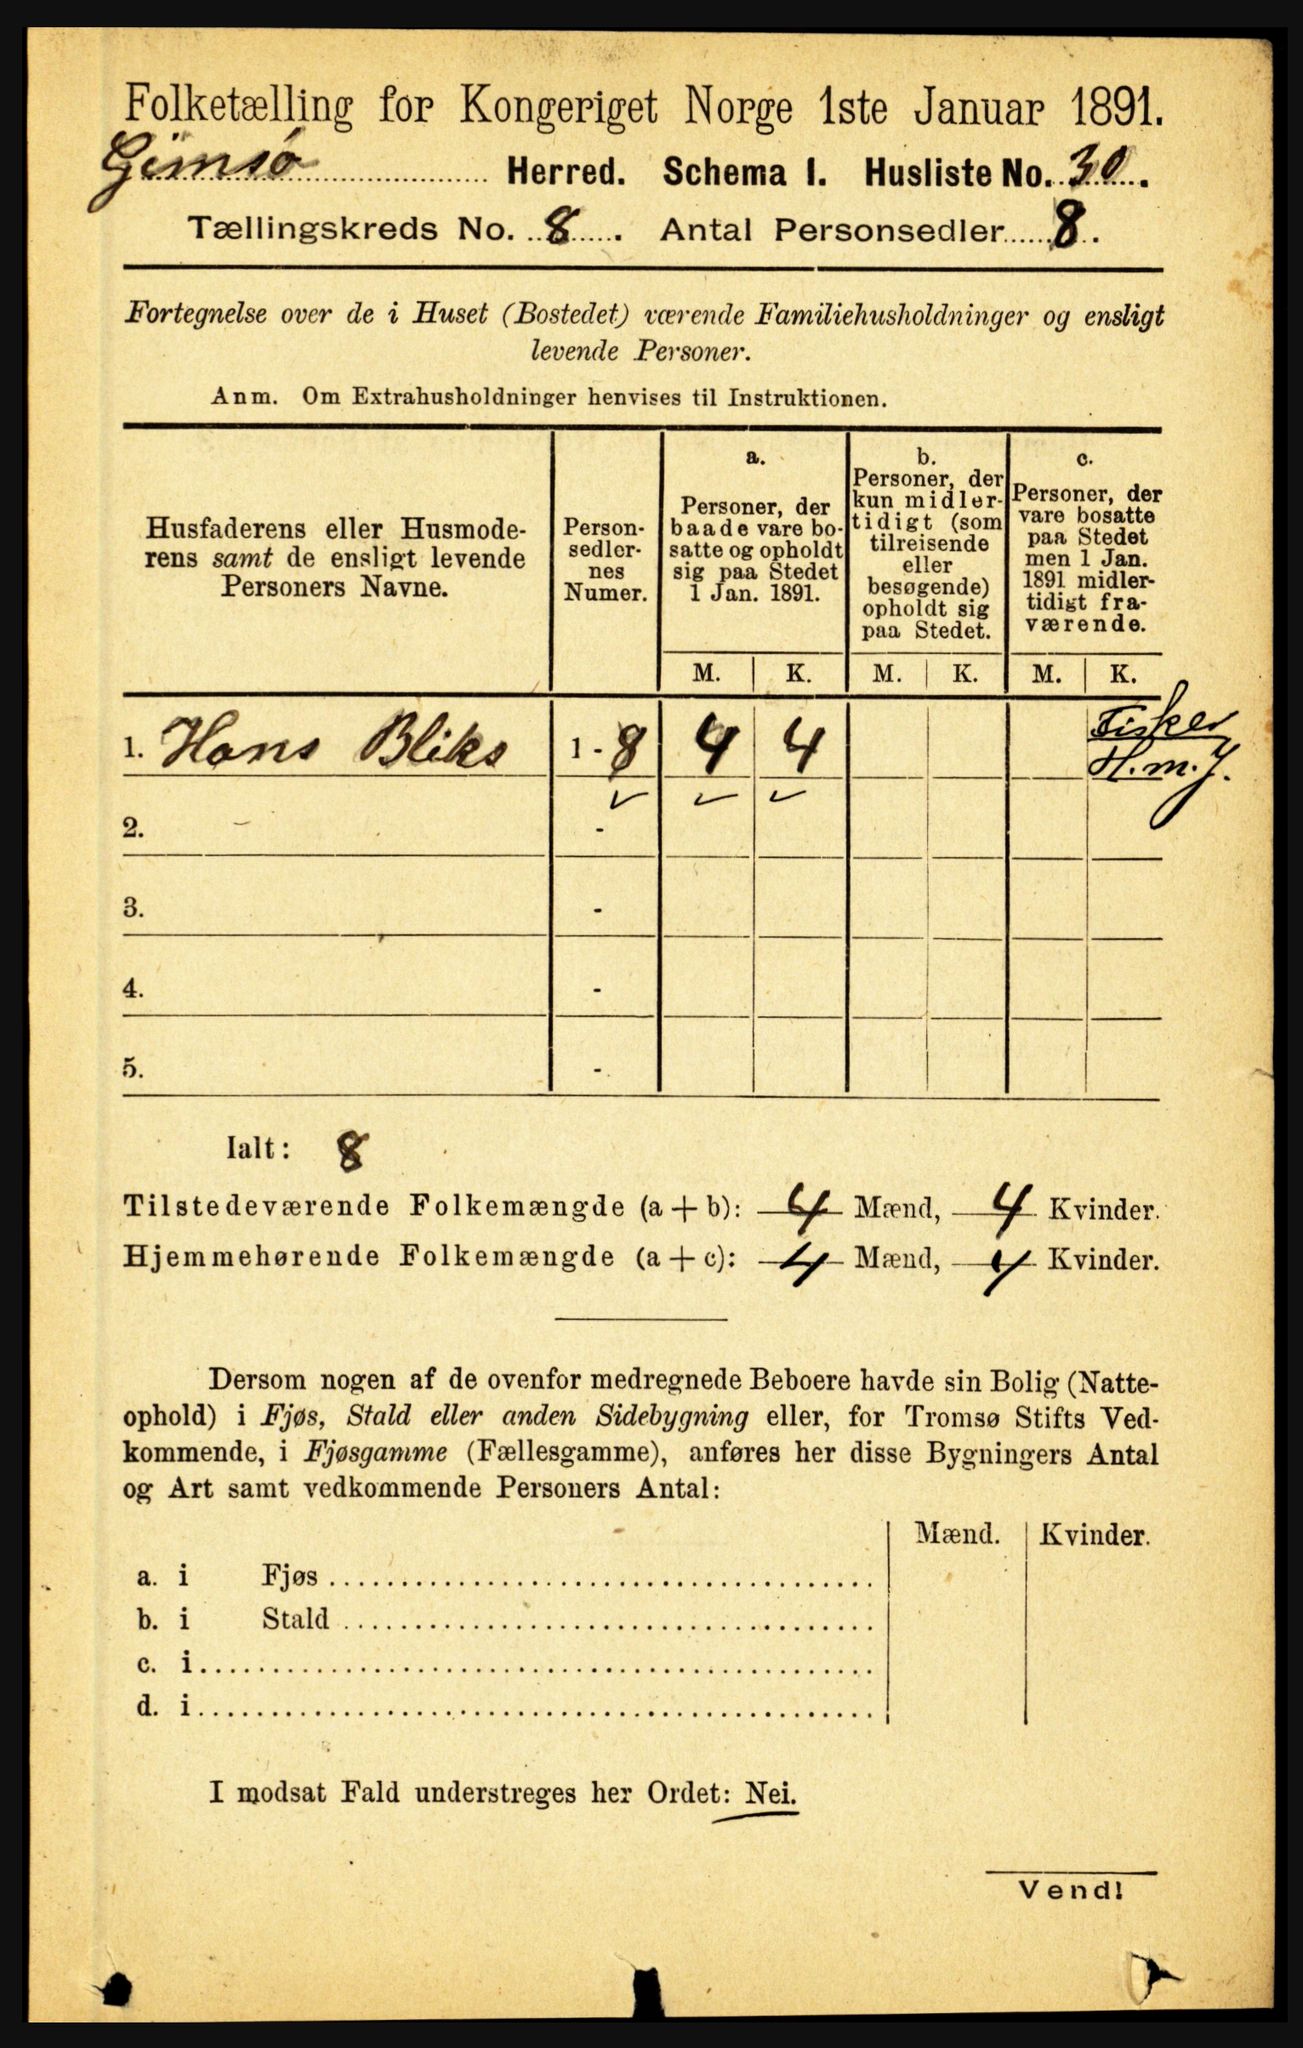 Folketælling for Kongeriget Norge 1ste Januar 1891.
Gimsø Herred. Schema I. Husliste No. 30.
Tællingskreds No. 8. Antal Personsedler 8.
Fortegnelse over de i Huset (Bostedet) værende Familiehusholdninger og ensligt
levende Personer.
Anm. Om Extrahusholdninger henvises til Instruktionen.
Husfaderens eller Husmode-
rens samt de ensligt levende
Personers Navne.
Person-
sedler-
nes
Numer.
a.
Personer, der
baade vare bo-
satte og opholdt
sig paa Stedet
1 Jan. 1891.
b.
Personer, der
kun midler-
tidigt (som
tilreisende
eller
besøgende)
opholdt sig
paa Stedet.
c.
Personer, der
vare bosatte
paa Stedet
men 1 Jan.
1891 midler-
tidigt fra-
værende.
M. K. M. K. M. K.
1. Hans Bliks 1 - 8 4 4 Fisker
H. m. J.
2. -
3. -
4. -
5. -
Ialt: 8
Tilstedeværende Folkemængde (a + b): 4 Mænd, 4 Kvinder.
Hjemmehørende Folkemængde (a + c): 4 Mænd, 4 Kvinder.
Dersom nogen af de ovenfor medregnede Beboere havde sin Bolig (Natte-
ophold) i Fjøs, Stald eller anden Sidebygning eller, for Tromsø Stifts Ved-
kommende, i Fjøsgamme (Fællesgamme), anføres her disse Bygningers Antal
og Art samt vedkommende Personers Antal:
Mænd. Kvinder.
a. i Fjøs
b. i Stald
c. i
d. i
I modsat Fald understreges her Ordet: Nei.
Vend!